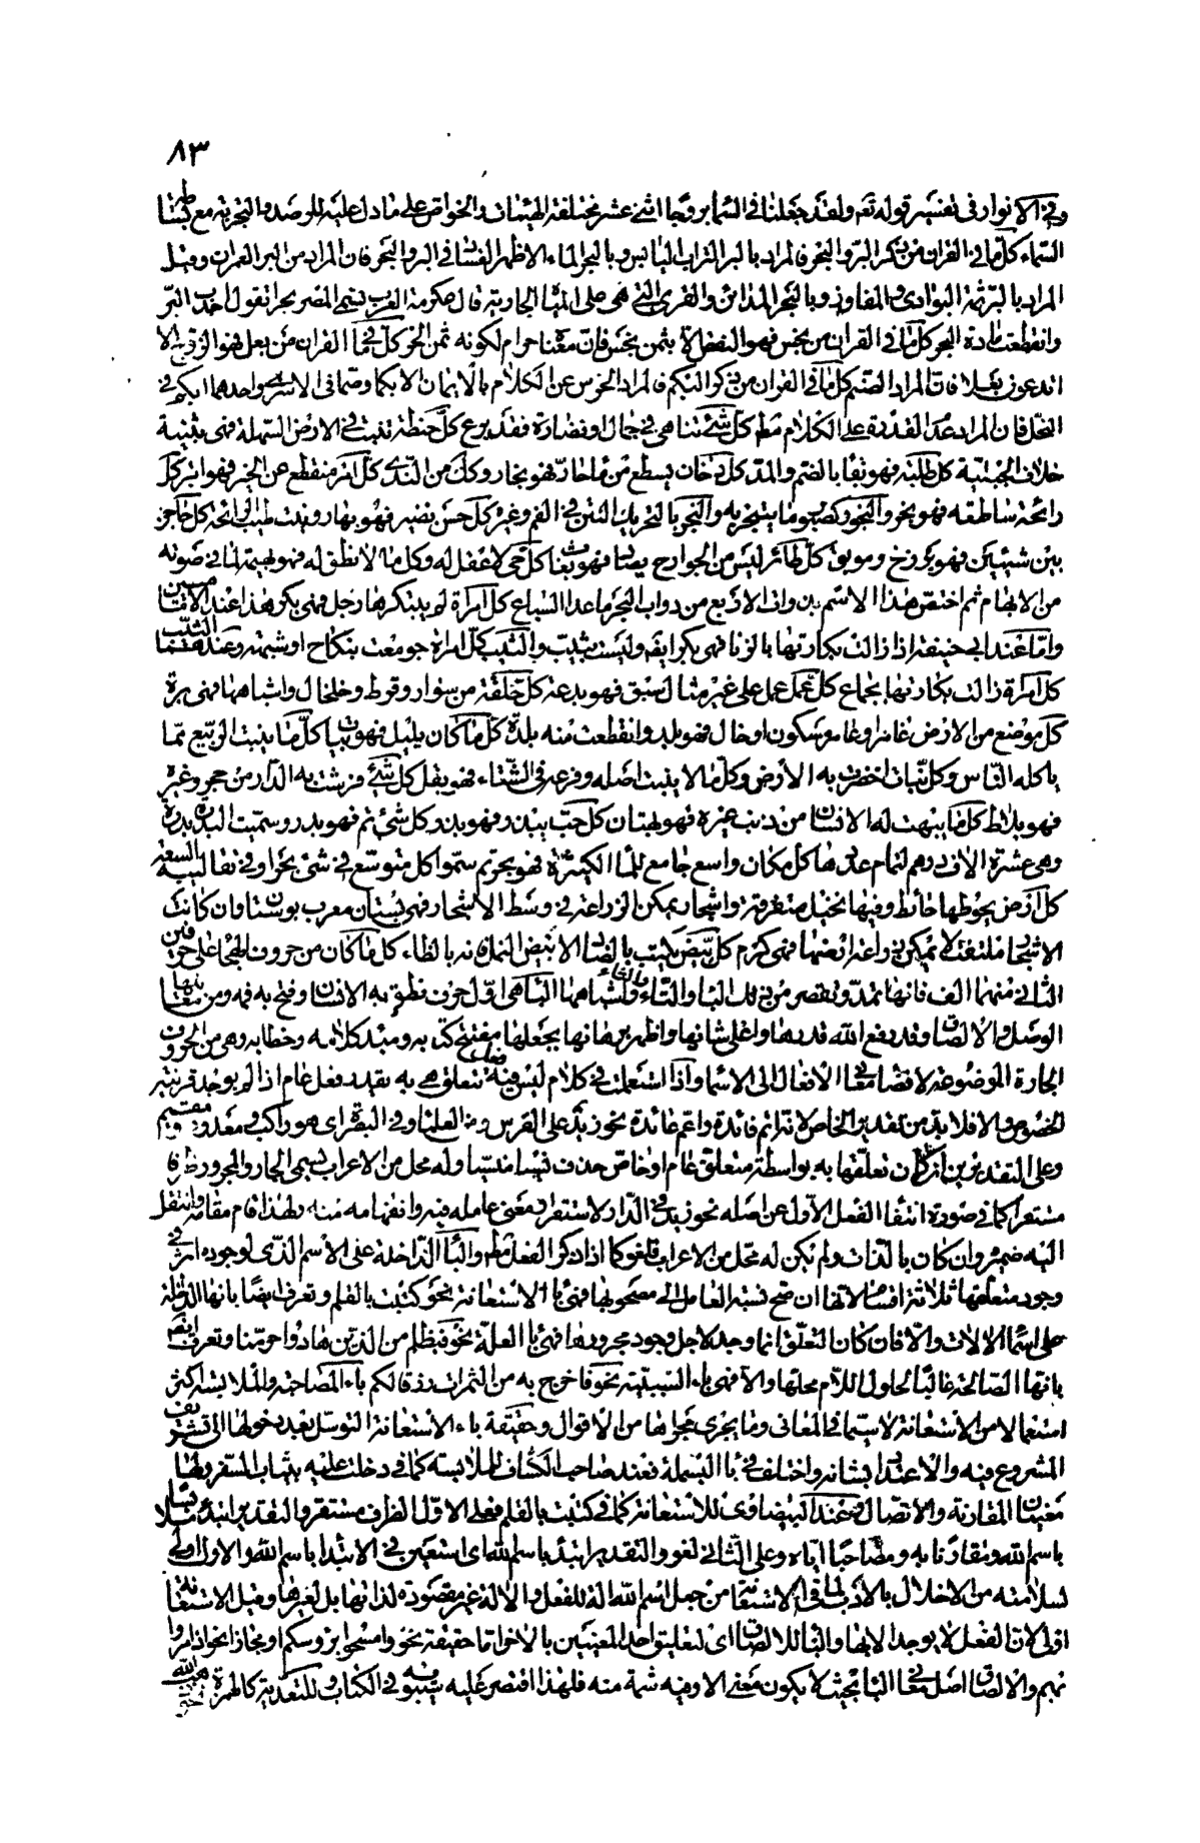 ٨٣
وفي الانوار في تفسير قوله تعم ولقد جعلنا في السماء بروجا اثني عشر مختلفة الهيئات والخواص على ما دل عليه الرصد والتجربة مع بساطة
السماء كل ما في القران من ذكر البر والبحر فالمراد بالبر التراب اليابس وبالبحر الماء الا ظهر الفساد في البر والبحر فان المراد من البر العمران وقيل
المراد بالبر ثمة البوادي والمفاوز وبالبحر المدائن والقرى التي هي على المياه الجارية قال عكرمة العرب تسمي المصر بحرا تقول اجدب البر
وانقطعت مادة البحر كل ما في القران من بخس فهو النقص الا بثمن بخس فان معناه حرام لكونه ثمن الحر كل ما في القران من بعل فهو الزوج الا
اتدعون بعلا فان المراد الصنم كل ما في القران من ذكر البكم فالمراد الخرس عن الكلام بالايمان الا بكما وصما في الاسراء واحدهما ابكم في
النحل فان المراد عدم القدرة على الكلام مط كل شئ تناهى في جمال ونضارة فقد برع كل حنطة تنبت في الارض السهلة فهي بثنية
خلاف الجبلية كل طلبة فهو بغا بالضم والمد كل دخان يسطع من ماء حار فهو بخار وكك من الندى كل امر منقطع عن الخير فهو ابتر كل
رائحة ساطعة فهو بخر والبخور كصبور ما يتبخر به والبخر بالتحريك النتن في الفم وغيره كل حسن بضير فهو بهار ونبت طيب الرائحة كل حاجز
بين شيئين فهو برزخ وموبق كل طائر ليس من الجوارح يصاد فهو بغاث كل حي لا عقل له وكل ما لا نطق له فهو بهيمة لما في صوته
من الابهام ثم اختص هذا الاسم بذوات الاربع من دواب البحر ما عدا السباع كل امراة لم يبتكرها رجل فهي بكر هذا عند الامامين
واما عند ابي حنيفة اذا زالت بكارتها بالزنا فهي بكر ايضا وليست بثيب والثيب كل امراة جومعت بنكاح او شبهة وعندهما الثيب
كل امراة زالت بكارتها بجماع كل عمل عمل على غير مثال سبق فهو بدعة كل حلقة من سوار وقرط وخلخال واشباهها فهي برة
كل موضع من الارض عامر او غامر مسكون او خال فهو بلد وانقطعت منه بلدة كل ما كان بليل فهو بيات كل ما ينبت الربيع مما
ياكله الناس وكل نبات اخضرت به الارض وكل ما لا ينبت اصله وفرعه في الشتاء فهو بقل كل شئ فرشت به الدار من حجر وغيره
فهو بلاط كل ما يبهت له الانسان من ذنب غيره فهو بهتان كل حب يبذر فهو بذر وكل شئ تم فهو بدر وسميت البدرة بدرة
وهي عشرة الاف درهم لتمام عددها كل مكان واسع جامع للماء الكثير فهو بحر ثم سموا كل متوسع في شئ بحرا وفي نقا
كل ارض يحوطها حائط وفيها نخيل متفرقة واشجار يمكن الزراعة في وسط الاشجار فهي بستان معرب بوستان وان كانت
الاشجار ملتفة لا يمكن زراعة ارضها فهي كرم كل بيض يكتب بالضاد الا بيض النمل فانه بالظاء كل ما كان من حروف الهجاء على حرفين
الثاني منهما الف فانها تمد وتقصر من ذلك الباء والتاء والثاء واشباهها الباء هي اول حرف نطق به الانسان وفتح به فمه ومن معانيها
الوصل والالصاق وقد رفع الله قدرها واعلى شانها واظهر برهانها بجعلها مفتتح كتابه ومبتدء كلامه وخطابه وهي من الحروف
الجارة الموضوعة لافضاء معاني الافعال الى الاسماء واذا استعملت في كلام ليس فيه فعل تتعلق هي به يقدر فعل عام اذا لم يوجد قرينة
الخصوص والا فلا بد من تقدير الخاص لانه اتم فائدة واعم عائدة نحو زيد على الفرس ومن العلماء وفي البصرة اي هو راكب ومعدود ومقيم
وعلى التقديرين ان كان تعلقها به بواسطة متعلق عام او خاص حذف نسيا منسيا وله محل من الاعراب يسمى الجار والمجرور ظرفا
مستقرا كما في صورة انتفاء الفعل الاول عن اصله نحو زيد في الدار لاستقرار معنى عامله فيه وانفهامه منه ولهذا قام مقامه وانتقل
اليه ضميره وان كان بالذات ولم يكن له محل من الاعراب فلغو كما اذا ذكر الفعل مط والباء الداخلة على الاسم الذي لوجوده اثر في
وجود متعلقها ثلاثة اقسام لانها ان صح نسبة العامل الى مصحوبها فهي باء الاستعانة نحو كتبت بالقلم وتعرف ايضا بانها الداخلة
على اسماء الالات والا فان كان التعلق انما وجد لاجل وجود مجرورها فهي باء العلة نحو فبظلم من الذين هادوا حرمنا وتعرف ايضا
بانها الصالحة غالبا لحلول اللام محلها والا فهي باء السببية نحو فاخرج به من الثمرات رزقا لكم باء المصاحبة والملابسة اكثر
استعمالا من الاستعانة لا سيما في المعاني وما يجري مجراها من الاقوال وحقيقة باء الاستعانة التوسل بعد دخولها الى تشريف
المشروع فيه والاعتداد بشانه واختلف في باء البسملة فعند صاحب الكشاف للملابسة كما في دخلت عليه بثياب السفر ولها
معنيان المقارنة والاتصال وعند البيضاوي للاستعانة كما في كتبت بالقلم فعلى الاول الظرف مستقر والتقدير ابتدئ ملتبسا
باسم الله ومقارنا به ومصاحبا اياه وعلى الثاني لغو والتقدير ابتدئ باسم الله اي استعين في الابتداء باسم الله والاول اولى
لسلامته من الاخلال بالادب لما في الاستعانة من جعل اسم الله الة للفعل والالة غير مقصودة لذاتها بل لغيرها وقيل الاستعانة
اولى لان الفعل لا يوجد الا بها والباء للالصاق اي لتعليق احد المعنيين بالاخر اما حقيقة نحو وامسحوا برؤسكم او مجازا نحو اذا مروا
بهم والالصاق اصل معاني الباء بحيث لا يكون معنى الا وفيه شمة منه فلهذا اقتصر عليه سيبويه في الكتاب وللتعدية كالهمزة